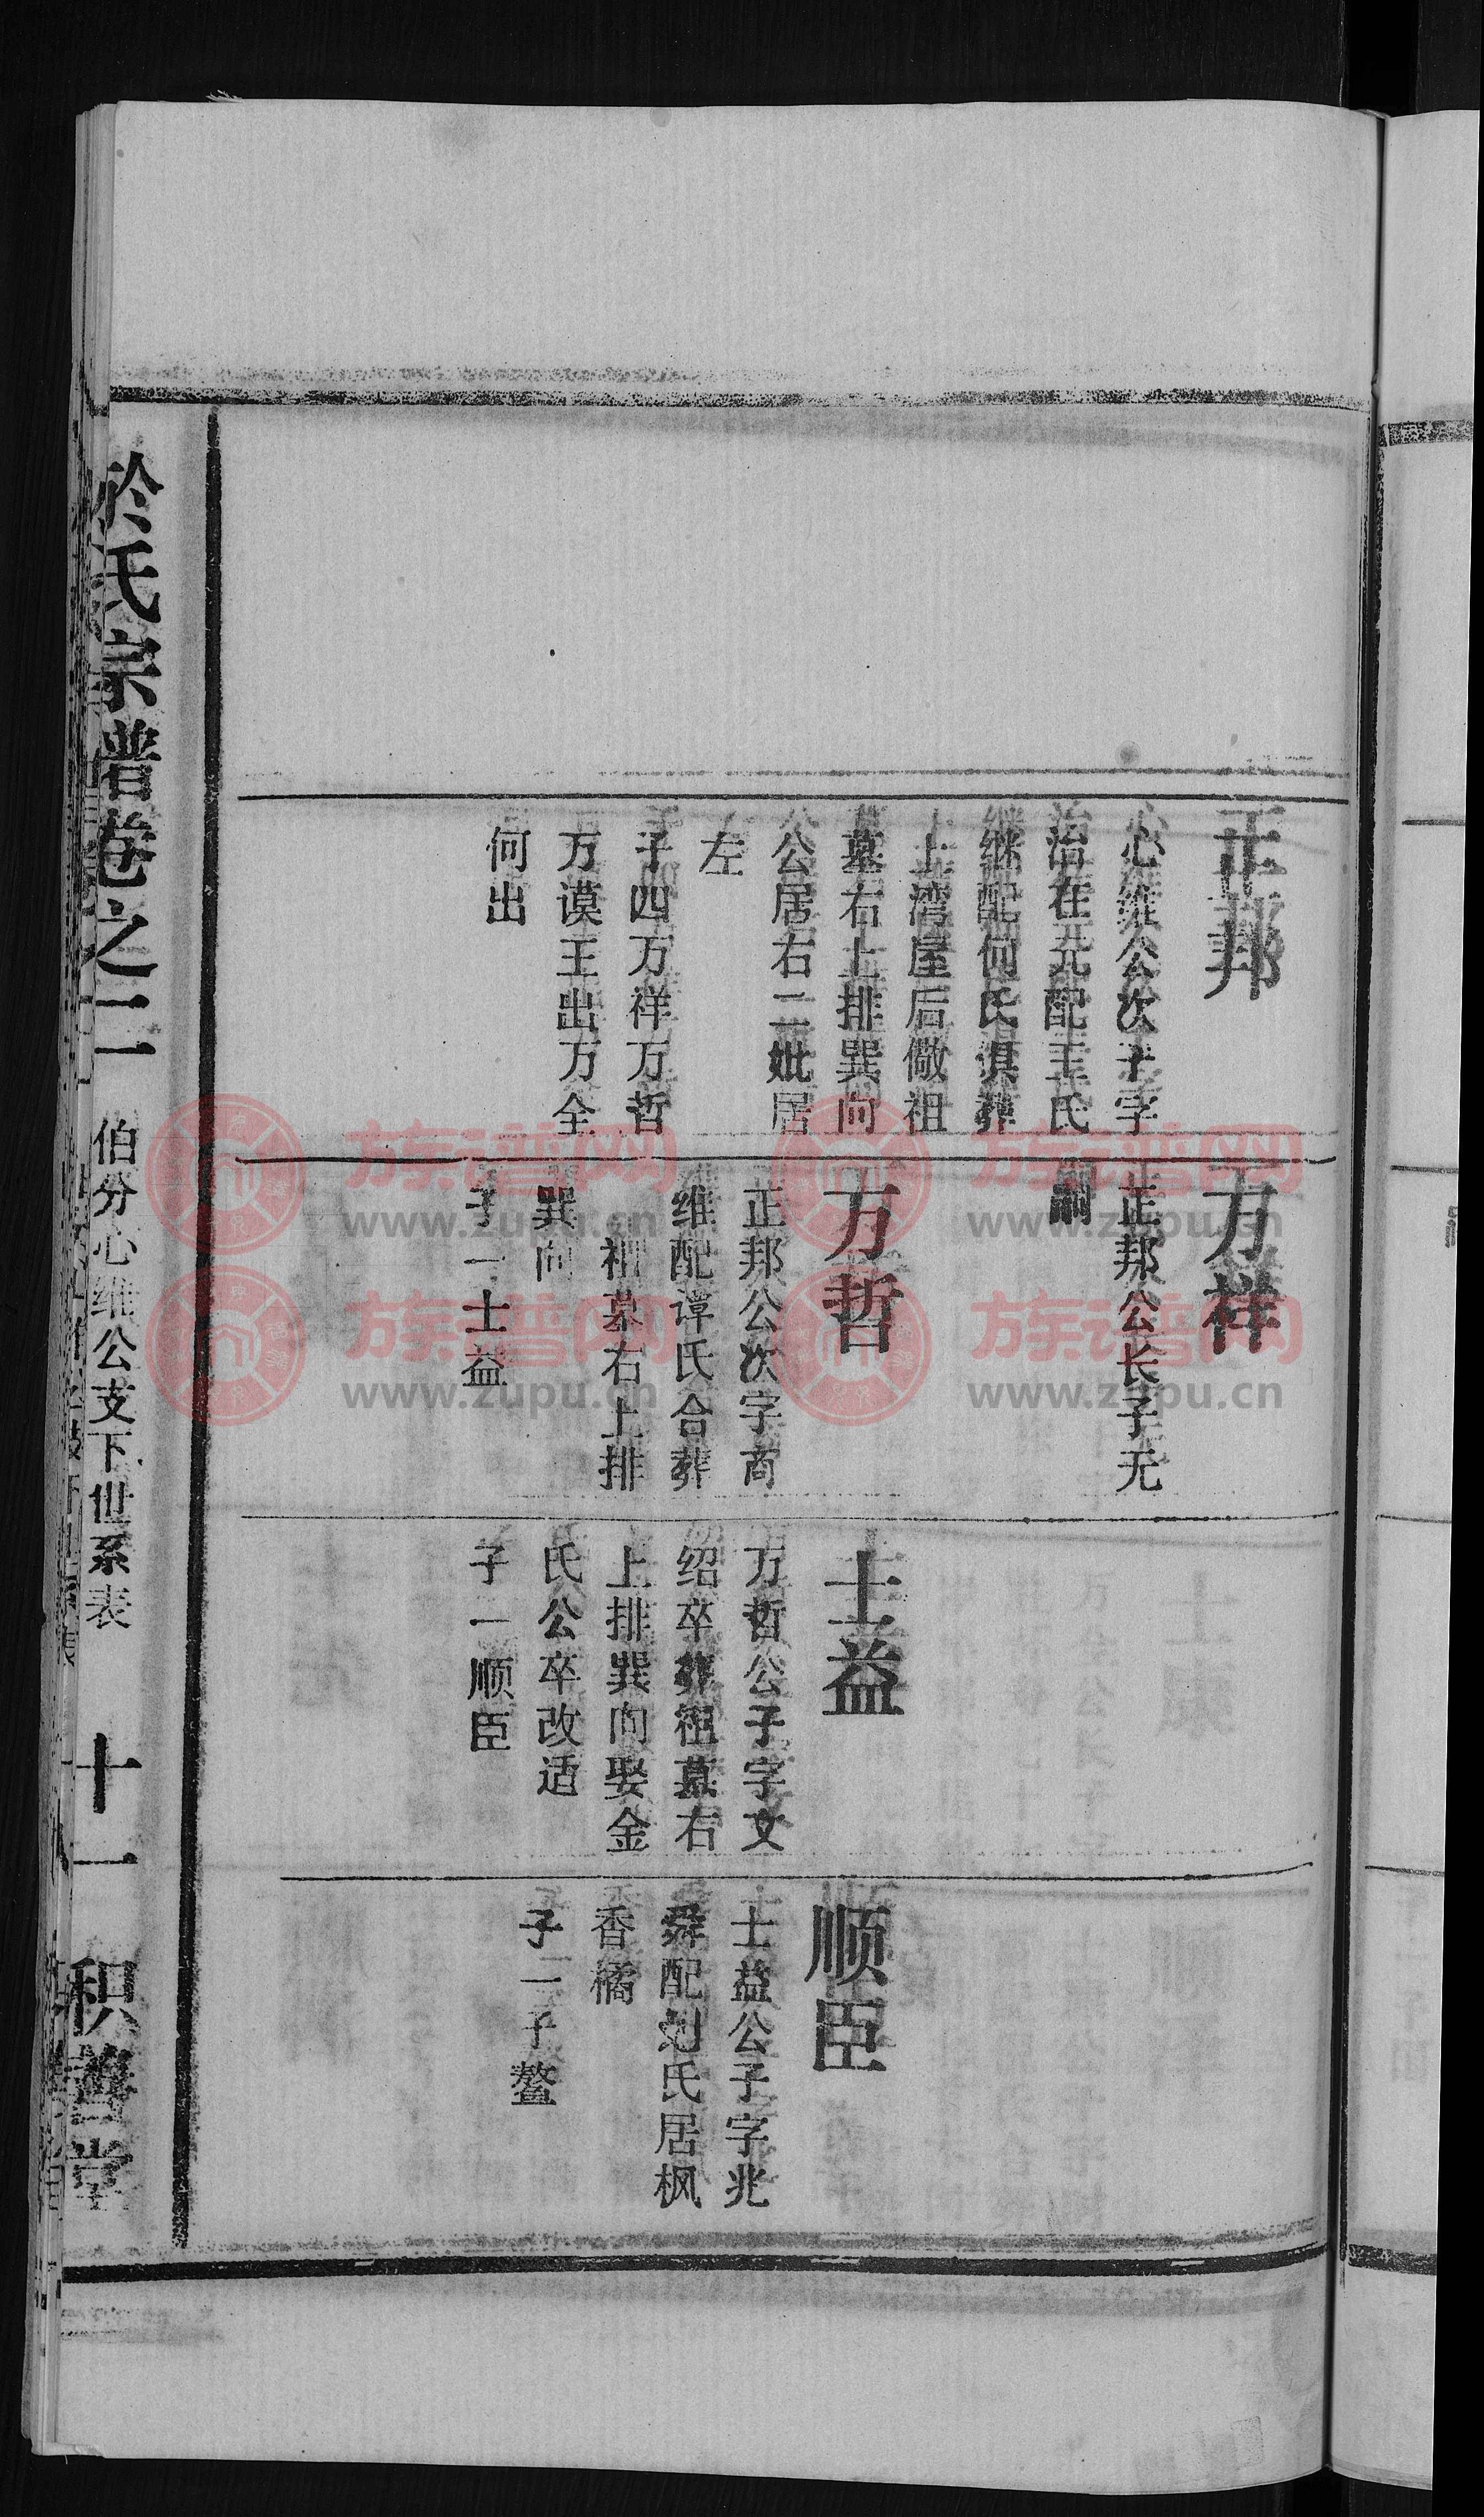 正邦
心维公次子字
治在元配王氏
继配何氏俱葬
上湾屋后儆祖
墓右上排巽向
公居右二妣居
左
子四万祥万哲
万谟王出万全
何出
万祥
正邦公长子无
嗣
万哲
正邦公次字商
维配谭氏合葬
祖墓右上排
巽向
子一士益
士益
万哲公子字文
绍卒葬祖墓右
上排巽向娶金
氏公卒改适
子一顺臣
顺臣
士益公子字兆
舜配刘氏居枫
香橘
子一子鳌
於氏宗谱卷之二
伯分心维公支下世系表
十一
积善堂
族谱网
www.zupu.cn
族谱网
www.zupu.cn
族谱网
www.zupu.cn
族谱网
www.zupu.cn